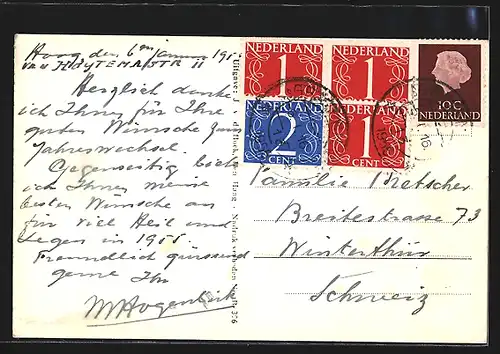 Haag den 6en januari 1955
van HEUTEMASTR 11
Herzlich danke
ich Ihnen für Ihre
guten Wünsche zum
Jahreswechsel.
Gegenseitig biete
ich Ihnen meine
besten Wünsche an
für viel Heil und
Segen in 1955.
Freundlich grüssend
gerne Ihr
NEDERLAND
1
CENT
NEDERLAND
1
NEDERLAND
2
CENT
NEDERLAND
1
CENT
10C
NEDERLAND
Familie Bretscher
Breitestrasse 73
Winterthur
Schweiz